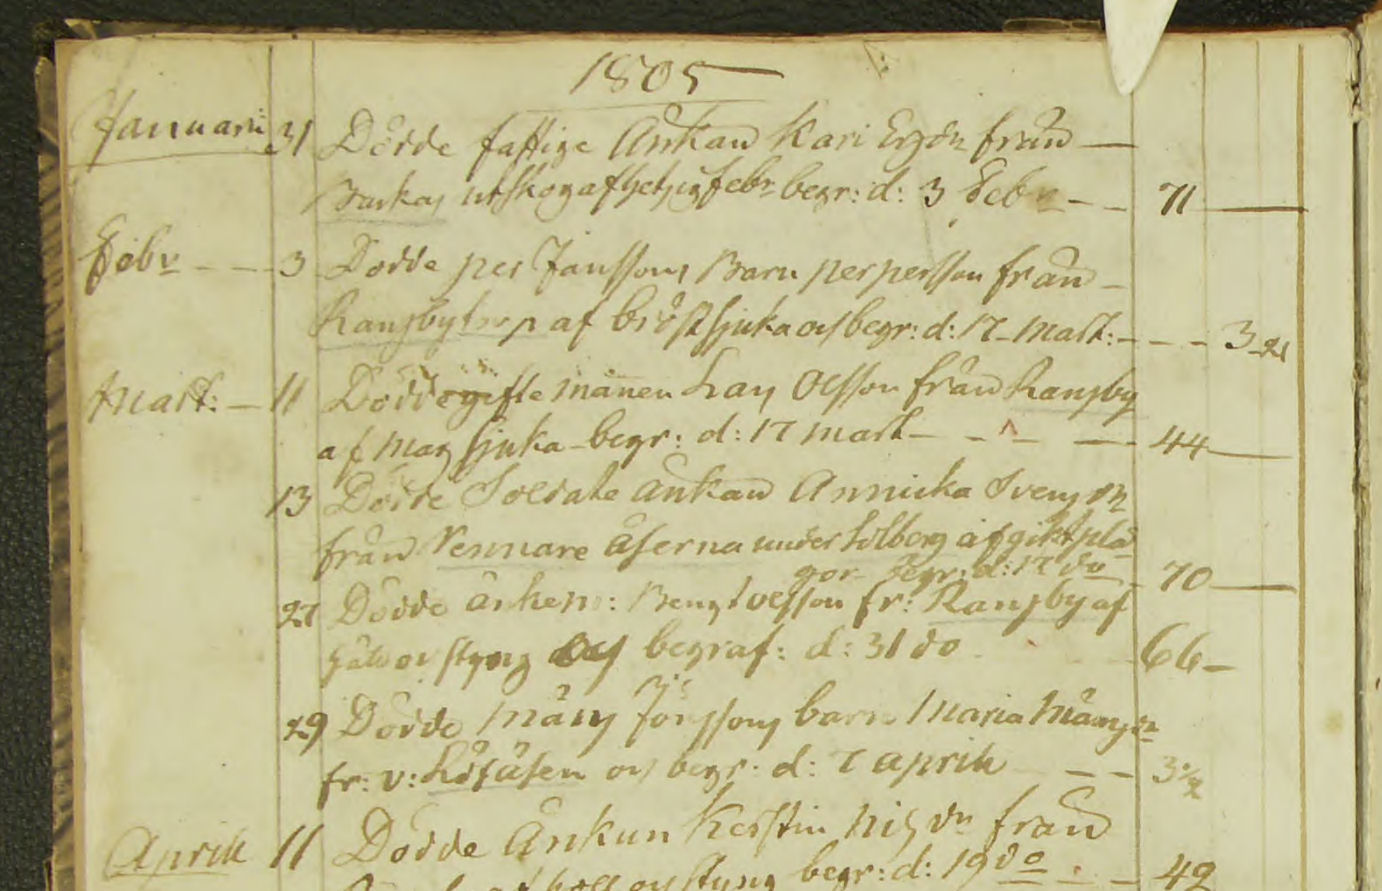 1805
Januari 31 Dödde fattige Änkan Kari Ersdr från
utskog af hetsig febr begr: d: 3 Febr 71
Febr 3 Dödde per Janssons Barn per persson från
Ransbytorp af bröstsjuka och begr: d: 17 Mart: 3 21
Mart: 11 Dödde gifte mannen Lars Olsson från Ransby
af Mag sjuka begr: d: 17 Mart 44
13 Dödde Soldate änkan Annicka Svensdr
från Vennare åserna under Solberg af gikt plå
gor begr: d: 17 do 70
27 Dödde änkem: Bengt olsson fr: Ransby af
håll ock styng och begraf: d: 31 do 66
29 Dödde Måns Jönssons barn Maria Månsdr
fr: v: och begr: d: 7 april 3
April 11 Dödde Änkan Kerstin Nilsdr från
af håll och styng begr: d: 19 do 49